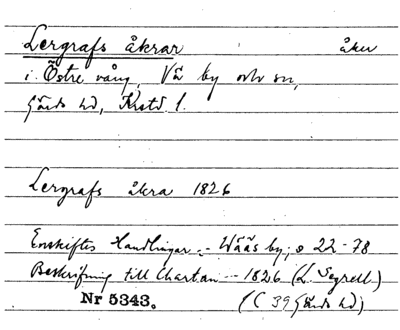 Lergrafs åkrar åker
i Östre vång, Vä by och sn,
Gärds hd, Krstd. l.
Lergrafs åkra 1826
Enskiftes Handlingar -- Wääs by; s 22-78
Beskrifning till Chartan -- 1826 (L. Segrell)
Nr 5343. (C 39 Gärds hd)